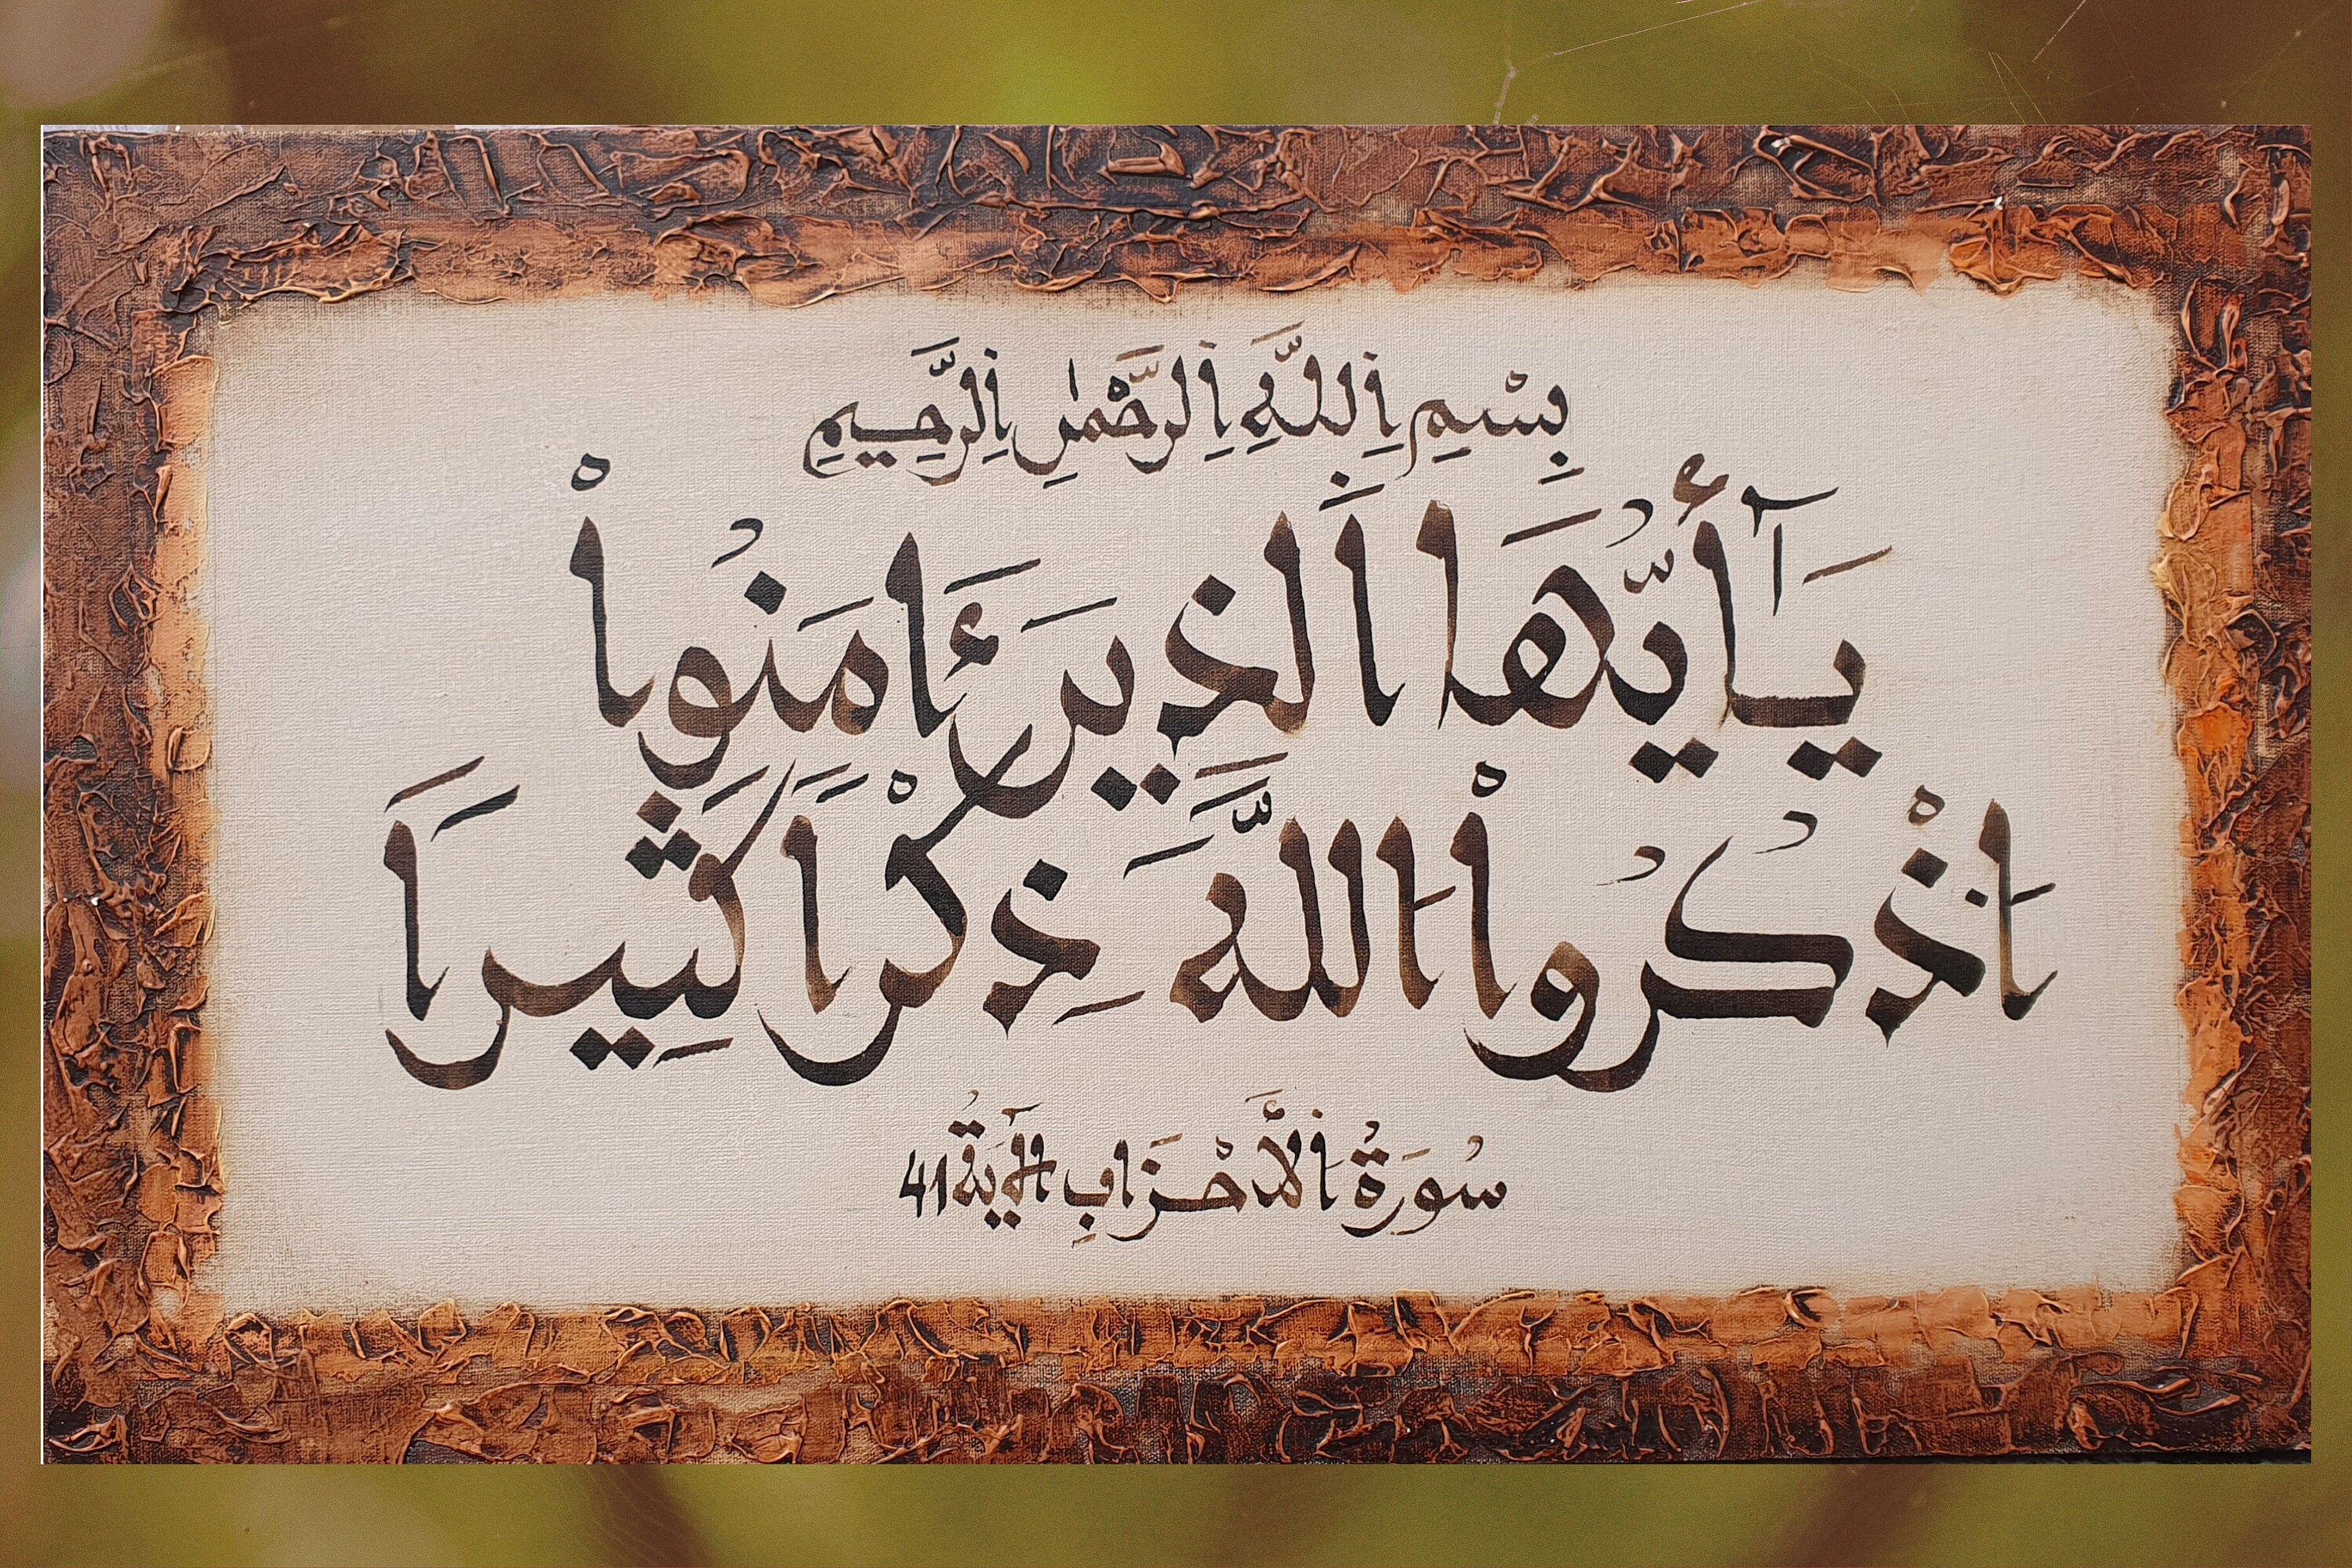 بِسْمِ اِ۬للَّهِ اِ۬لرَّحْمٰنِ اِ۬لرَّحِيمِ
يَٰٓأَيُّهَا اَ۬لذِينَ ءَامَنُواْ
اُ۟ذْكُرُواْ اُ۬للَّهَ ذِكْراٗ كَثِيراٗ
سُورَةُ اُ۬لْأَحْزَابِ الْآيَةُ 41